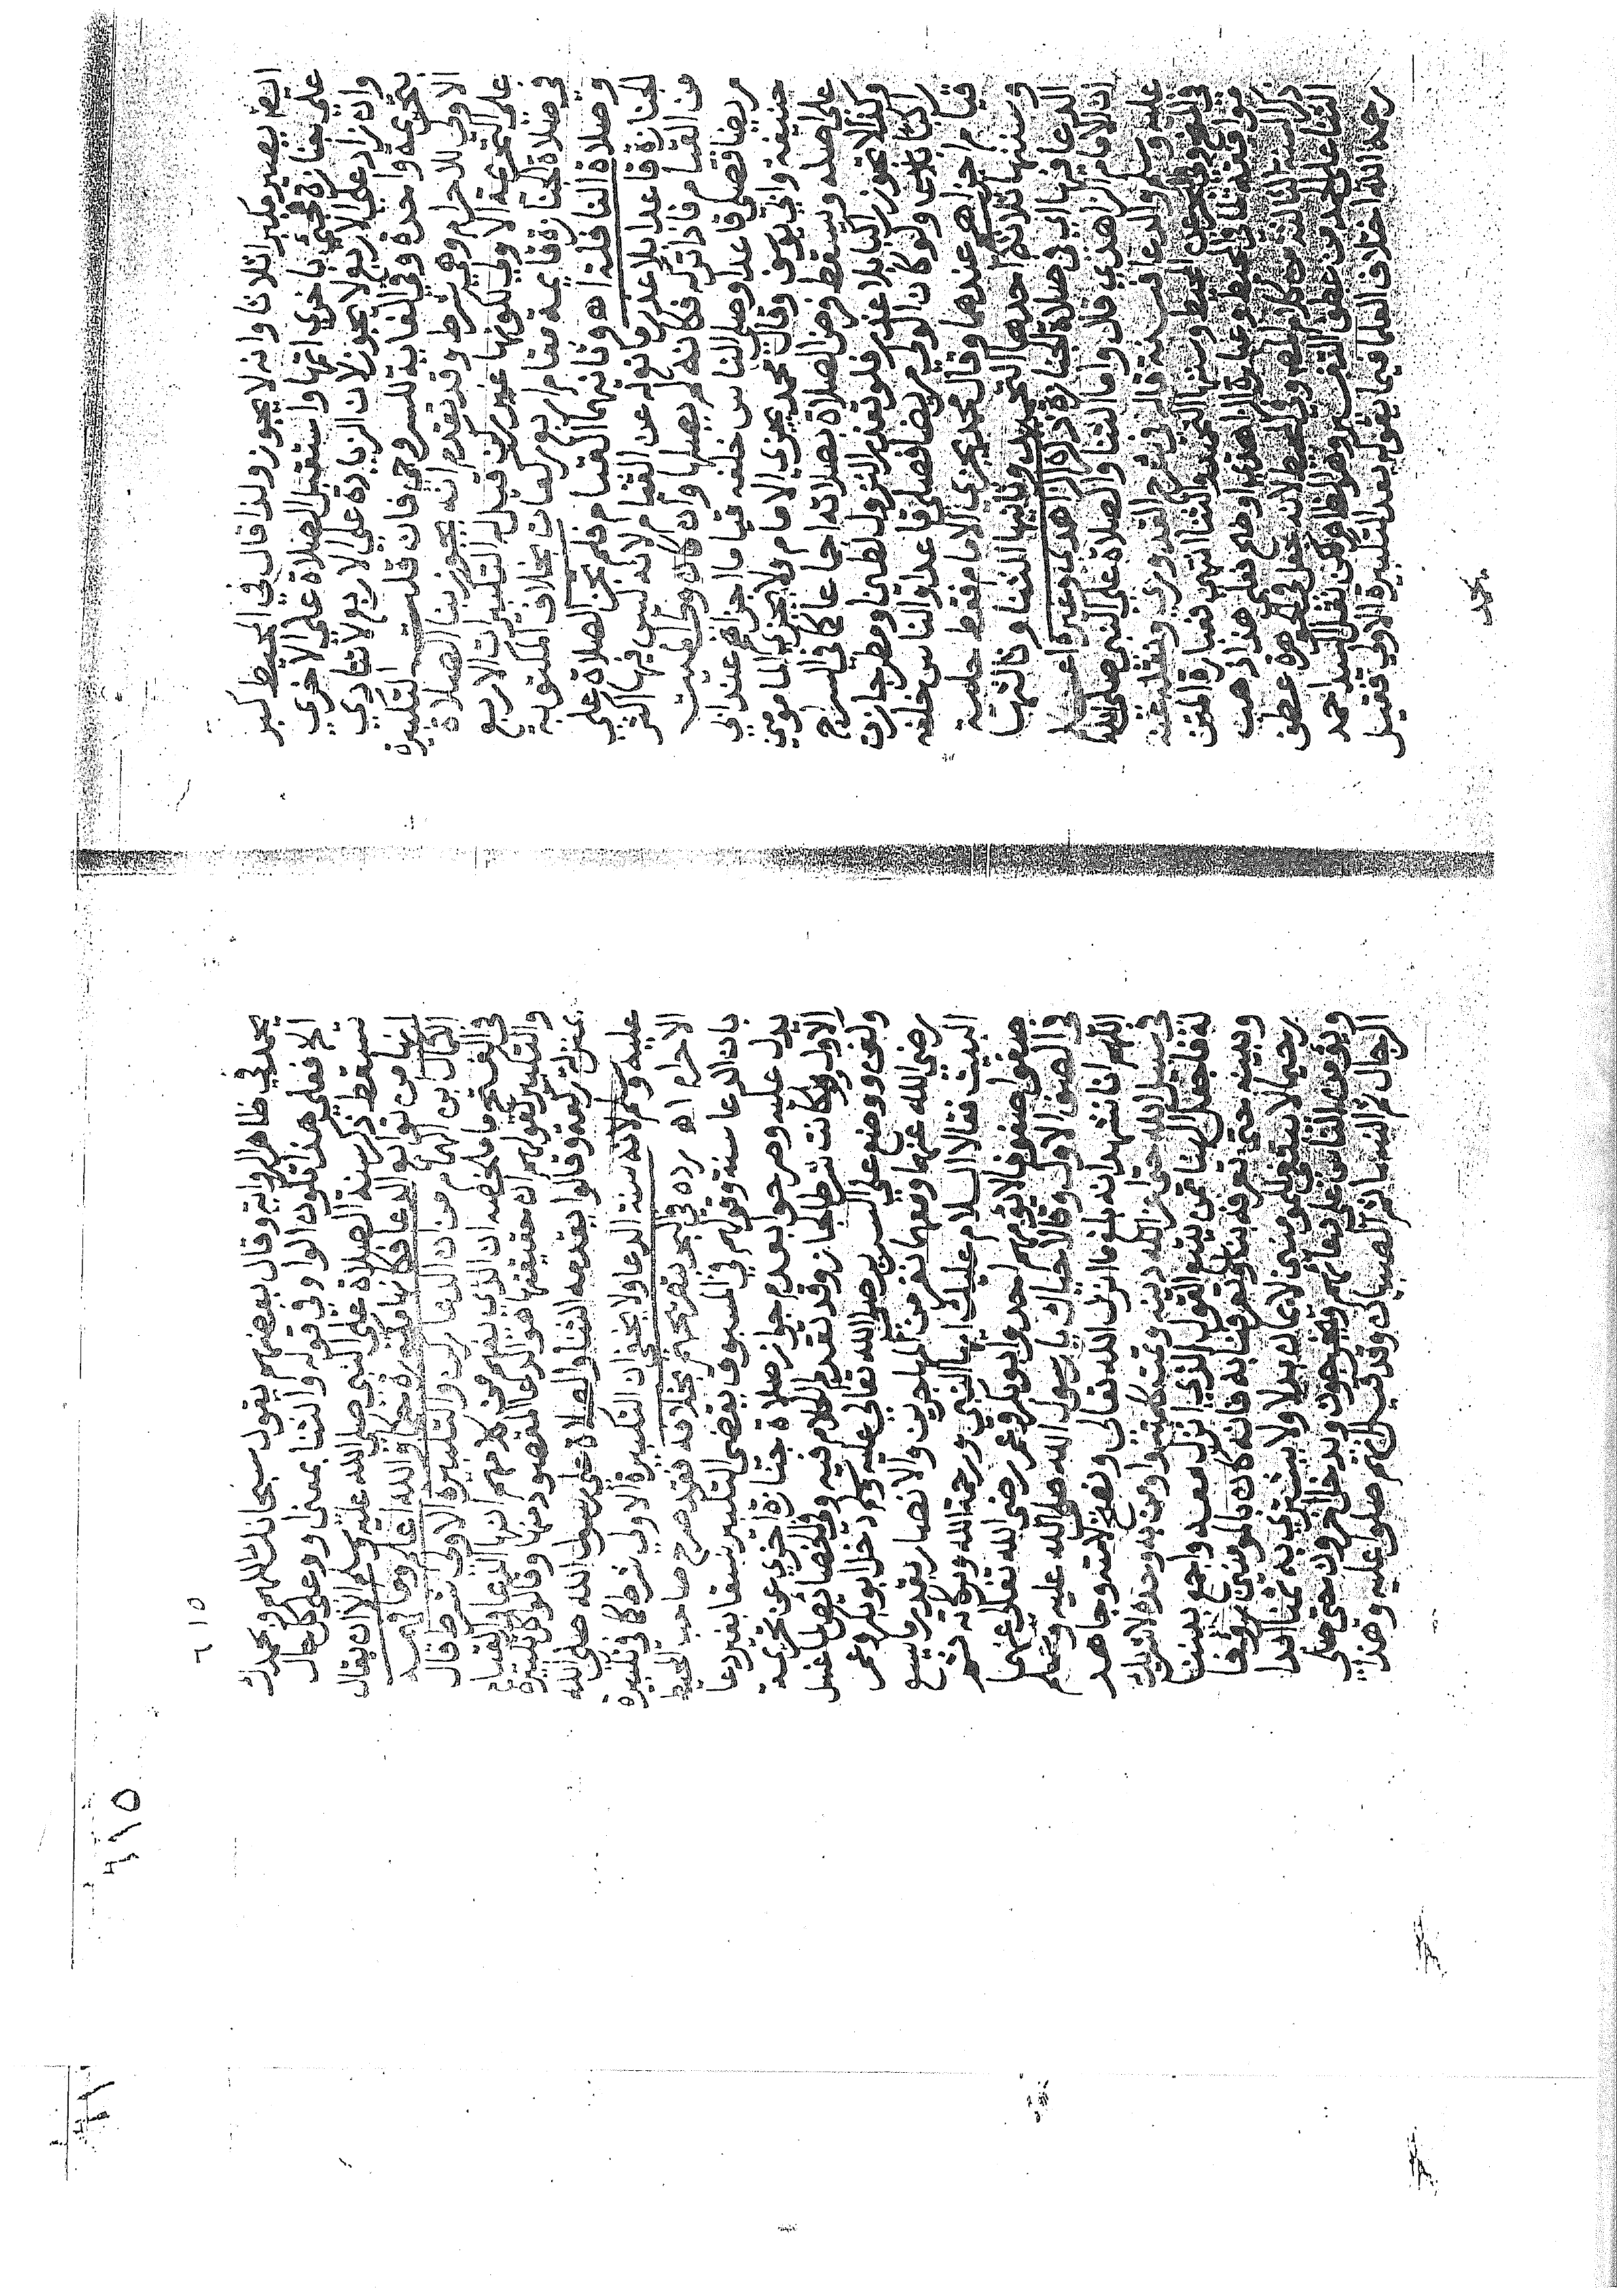 ايضا يصير مكبرا ثلاثا وانه لا يجوز ولذا قال في المحيط كبر
على جنازة فجيئ باخرى اتمها واستقبل الصلاة على الاخرى
وان زاد على الاربع لا يجوز لان الزيادة على الاربع لا تتادي
بتحريمة واحدة وفي الغاية للسروجي فان قلت التكبيرة
الاولى للاحرام وهي شرط وقد تقدم انه يجوز بنا الصلاة
على التحريمة الاولى لكونها غير ركن قيل له التكبيرات الاربع
في صلاة الجنازة قايمة مقام اربع ركعات بخلاف المكتوبه
وصلاة النافلة اهـ وثانيهما القيام فلم تجز الصلاة على
الجنازة قاعدا بلا عذر مانع له عن القيام لانه ليس فيها اكثر
من القيام فاذا تركه فكانه لم يصلها وان كان ولي الميت
مريضا فصلى قاعدا وصلى الناس خلفه قياما اجزاهم عند ابي
حنيفة وابي يوسف وقال محمد يجزي الامام ولا يجزي المامومين
على اصله وسقط فرض الصلاة بصلاته اجماعا كما في السراج
وكذا لا تجوز راكبا بلا عذر فلو تعذر النزول لطين ومطر جازت
راكبا بلا ولو كان الولي مريضا فصلى قاعدا والناس خلفه
قيام اجزاهم عندهما وقال محمد يجزي الامام فقط حلية
وسننها ثلاثة احدها التحميد وثانيها الثنا وثالثها
الدعا فيها اي في صلاة الجنازة ذكره الزاهدي وغيره
ان الامام الزاهدي قال واما الثنا والصلاة على النبي صلى الله
عليه وسلم والدعا فسنة قاله في شرح القدوري ونقله عنه
في النهر وفي البحر عن المحيط وسننها التحميد والثنا انتهى فعبارة المتن
موافقة لما في المحيط وعبارة الزاهدي اوضح فعلى هذا ذهب
ذكر السنة الثالثة من كلام المص وفي لانه جعل في البحر عطف
الثنا على الحمد من عطف التفسير وهو الظاهر لكن نقل السيد احمد
رحمه الله اختلاف العلما فيما يقوله بعد التكبيرة الاولى فقيل
٦١٥
يحمد في ظاهر الرواية وقال بعضهم يقول سبحانك اللهم وبحمدك
الخ فعلى هذا تكون الواو في قوله والثنا بمعنى او وعلى كل حال
تسقط ذكر سنة الصلاة على النبي صلى الله عليه وسلم الا ان يقال
انها من توابع الدعا فكانها مذكورة حكما والله اعلم وما فهمه
الكمال ابن الهمام من ان الدعا ركن والتكبيرة الاولى شرط قال
في الفتح ما ملخصه ان الذي يفهم من كلامهم انها الدعا والقيام
والتكبير لقولهم ان حقيقتها هو الدعا المقصود منها وقالوا كل تكبيرة
بمنزلة ركعة وقالوا يقدم الثنا والصلاة على رسول الله صلى الله
عليه وسلم لانه سنة الدعا ولا يخفى ان التكبيرة الاولى شرط كما في تكبيرة
الاحرام اهـ رده في البحر بتصريحهم بخلافه فقد صرح صاحب المحيط
بان الدعا سنة وقولهم في المسبوق يقضي التكبير نسقا بغير دعا
يدل عليه وصرحوا بعدم جواز صلاة جنازة اخرى عن تحريمة
الاولى ولو كانت شرطا لجاز وقد تقدم الكلام فيه وفي الخصايص لما غسل
وكفن ووضع على السرير صلى الله تعالى عليه وسلم دخل ابوبكر وعمر
رضي الله عنهما ومعهما نفر من المهاجرين والانصار بقدر ما يسع
البيت فقالا السلام عليك ايها النبي ورحمة الله وبركاته ثم
صفوا صفوفا لا يؤمهم احد وابوبكر وعمر رضي الله تعالى عنهما
في الصف الاول وقالا حيال يا رسول الله صلى الله عليه وسلم
اللهم انا نشهد انه بلغ ما انزل الله تعالى ونصح لامته وجاهد
في سبيل الله حتى اعز الله دينه وتمت كلمته واومن به وحده لا شريك
له فاجعل الهنا ممن يتبع القول الذي انزل معه واجمع بيننا
وبينه حتى تعرفه بنا وتعرفنا به فانه كان بالمومنين رؤفا
رحيما لا نبتغي بالايمان به بدلا ولا نشتري به ثمنا ابدا
ويؤمن الناس على دعائهم ويخرجون ويدخل اخرون حتى صلى
الرجال ثم النسا ثم الصبيان وقد قيل انهم صلوا عليه وهذا
٦١٥